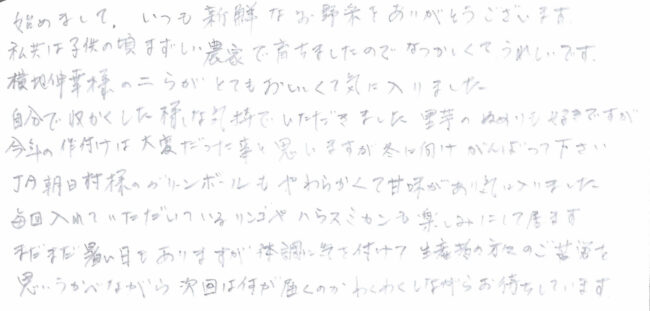 始めまして。いつも新鮮なお野菜をありがとうございます。
私共は子供の頃まずしい農家で育ちましたのでなつかしくてうれしいです。
横地伸幸様のニラがとてもおいしくて気に入りました
自分で収かくした様な気持でいただきました 里芋のぬめりも好きですが
今年の作付けは大変だった事と思いますが冬に向けがんばって下さい
JA朝日村様のグリーンボールもやわらかくて甘味があり気に入りました
毎回入れていただいているリンゴやハウスミカンも楽しみにして居ます
まだまだ暑い日もありますが体調に気を付けて生産者の方々のご苦労を
思いうかべながら次回は何が届くのかわくわくしながらお待ちしています。